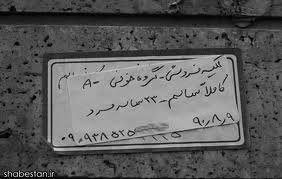 کلیه فروشی - گروه خونی A-
کاملاً سالم - ۲۳ ساله مرد
۹۰/۸/۹
۰۹۰۹۳۸۵۲۵
shabestan.ir